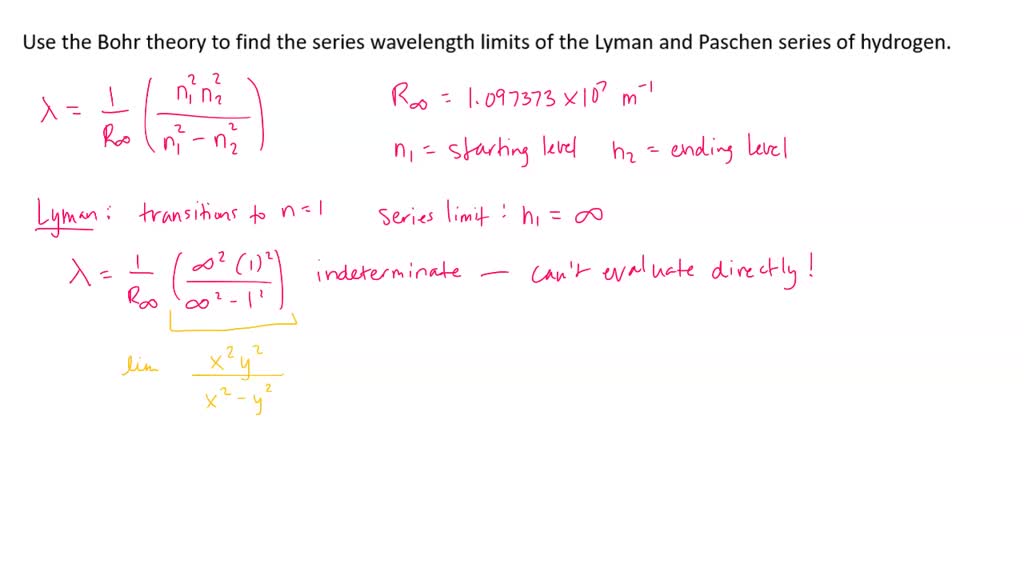 Use the Bohr theory to find the series wavelength limits of the Lyman and Paschen series of hydrogen.
λ = 1/R∞ (n₁² n₂² / n₁² − n₂²)
R∞ = 1.097373 × 10⁷ m⁻¹
n₁ = starting level n₂ = ending level
Lyman: transitions to n = 1 series limit: n₁ = ∞
λ = 1/R∞ (∞² (1)² / ∞² − 1²) indeterminate — can't evaluate directly!
lim x² y² / x² − y²